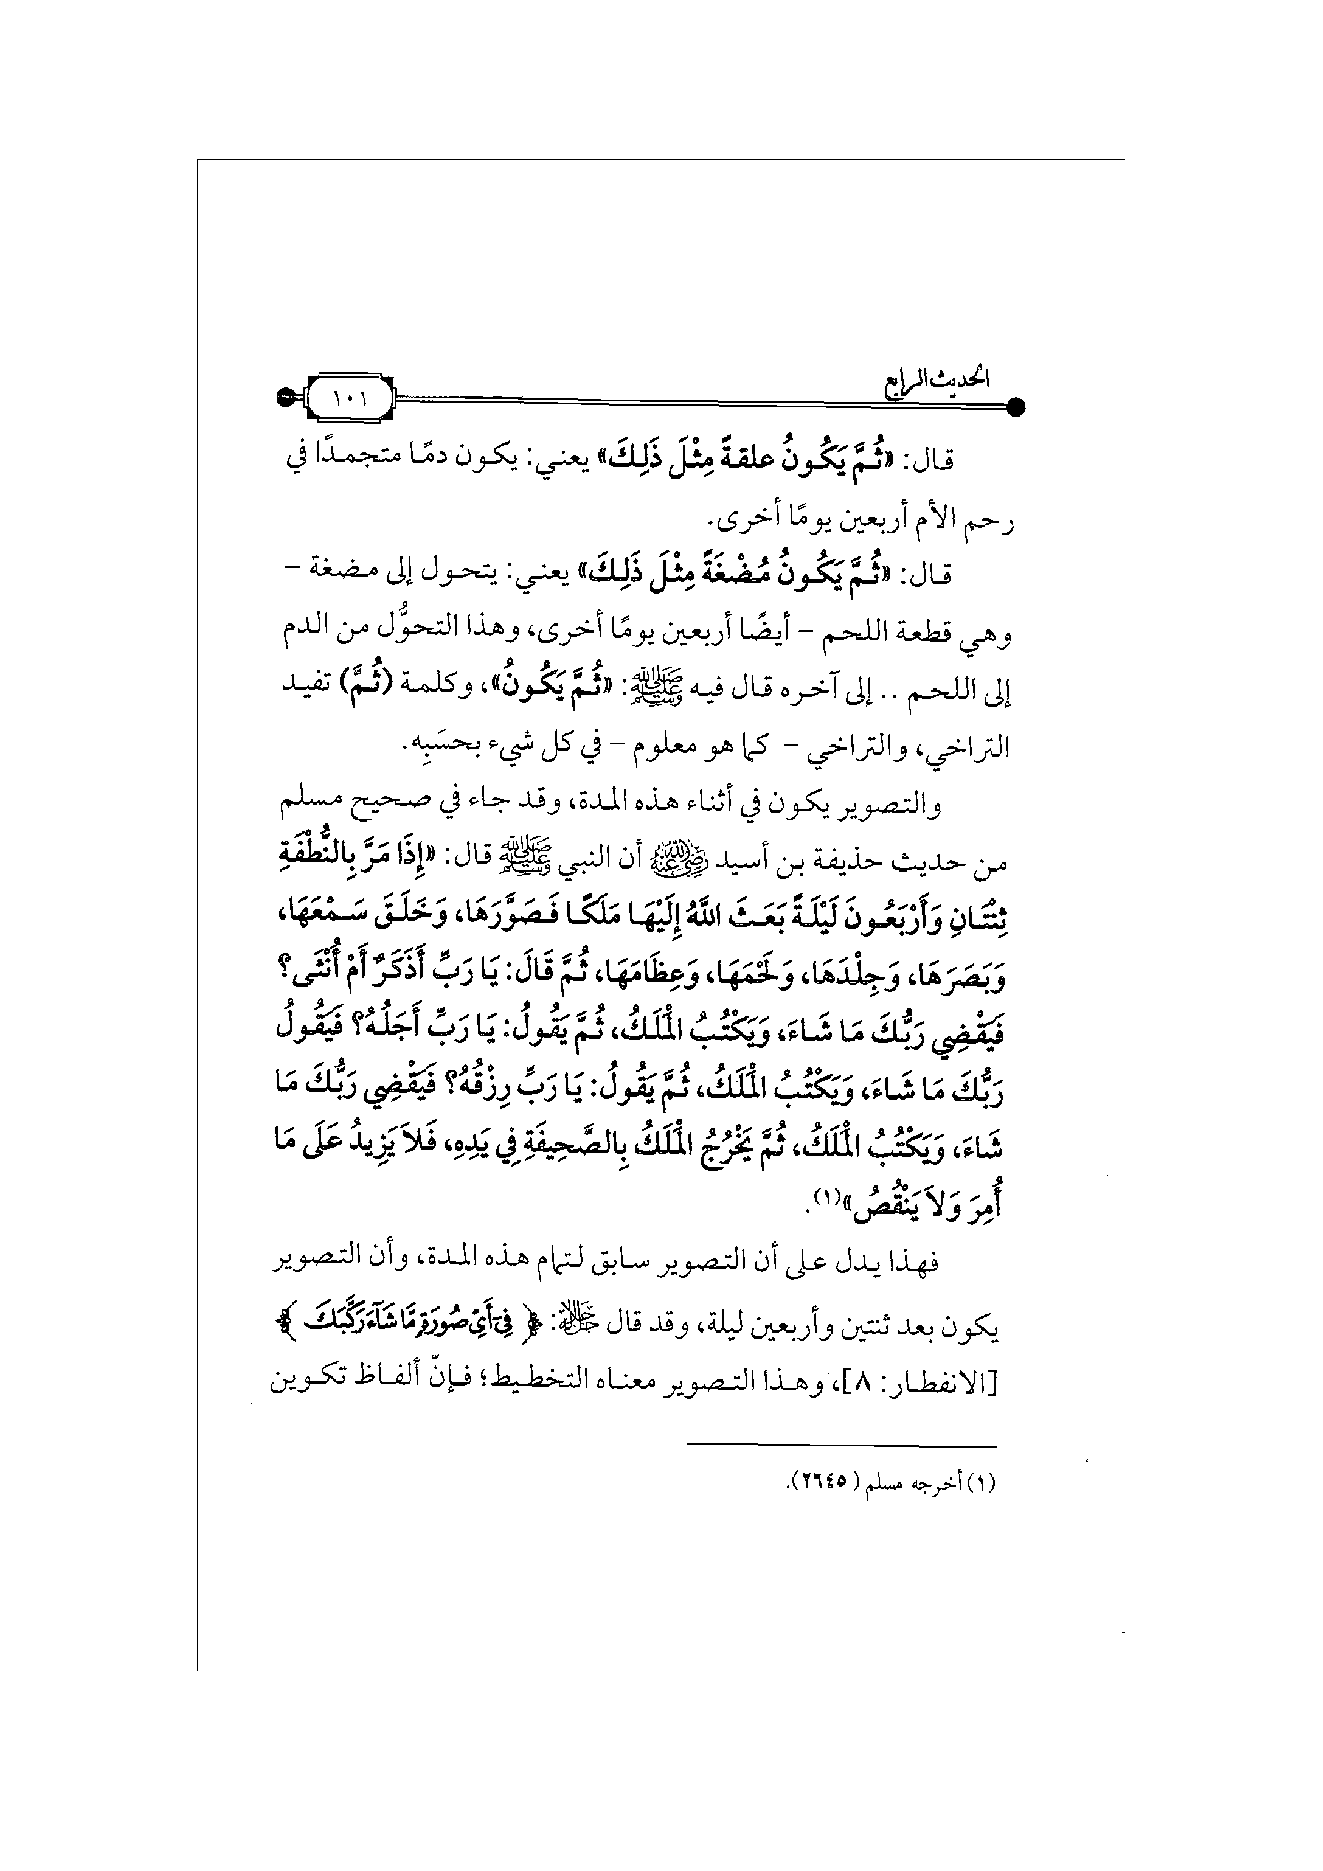 الحديث الرابع
١٠١
قال: «ثُمَّ يَكُونُ علقةً مِثْلَ ذَلِكَ» يعني: يكون دمًا متجمدًا في
رحم الأم أربعين يومًا أخرى.
قال: «ثُمَّ يَكُونُ مُضْغَةً مِثْلَ ذَلِكَ» يعني: يتحول إلى مضغة –
وهي قطعة اللحم – أيضًا أربعين يومًا أخرى، وهذا التحوُّل من الدم
إلى اللحم .. إلى آخره قال فيه ﷺ: «ثُمَّ يَكُونُ»، وكلمة (ثُمَّ) تفيد
التراخي، والتراخي – كما هو معلوم – في كل شيء بحسَبِه.
والتصوير يكون في أثناء هذه المدة، وقد جاء في صحيح مسلم
من حديث حذيفة بن أسيد رضي الله عنه أن النبي ﷺ قال: «إِذَا مَرَّ بِالنُّطْفَةِ
ثِنْتَانِ وَأَرْبَعُونَ لَيْلَةً بَعَثَ اللَّهُ إِلَيْهَا مَلَكًا فَصَوَّرَهَا، وَخَلَقَ سَمْعَهَا،
وَبَصَرَهَا، وَجِلْدَهَا، وَلَحْمَهَا، وَعِظَامَهَا، ثُمَّ قَالَ: يَا رَبِّ أَذَكَرٌ أَمْ أُنْثَى؟
فَيَقْضِي رَبُّكَ مَا شَاءَ، وَيَكْتُبُ الْمَلَكُ، ثُمَّ يَقُولُ: يَا رَبِّ أَجَلُهُ؟ فَيَقُولُ
رَبُّكَ مَا شَاءَ، وَيَكْتُبُ الْمَلَكُ، ثُمَّ يَقُولُ: يَا رَبِّ رِزْقُهُ؟ فَيَقْضِي رَبُّكَ مَا
شَاءَ، وَيَكْتُبُ الْمَلَكُ، ثُمَّ يَخْرُجُ الْمَلَكُ بِالصَّحِيفَةِ فِي يَدِهِ، فَلَا يَزِيدُ عَلَى مَا
أُمِرَ وَلَا يَنْقُصُ»(١).
فهذا يدل على أن التصوير سابق لتمام هذه المدة، وأن التصوير
يكون بعد ثنتين وأربعين ليلة، وقد قال جل جلاله: ﴿ فِي أَيِّ صُورَةٍ مَّا شَاءَ رَكَّبَكَ ﴾
[الانفطار: ٨]، وهذا التصوير معناه التخطيط؛ فإنّ ألفاظ تكوين
(١) أخرجه مسلم (٢٦٤٥).